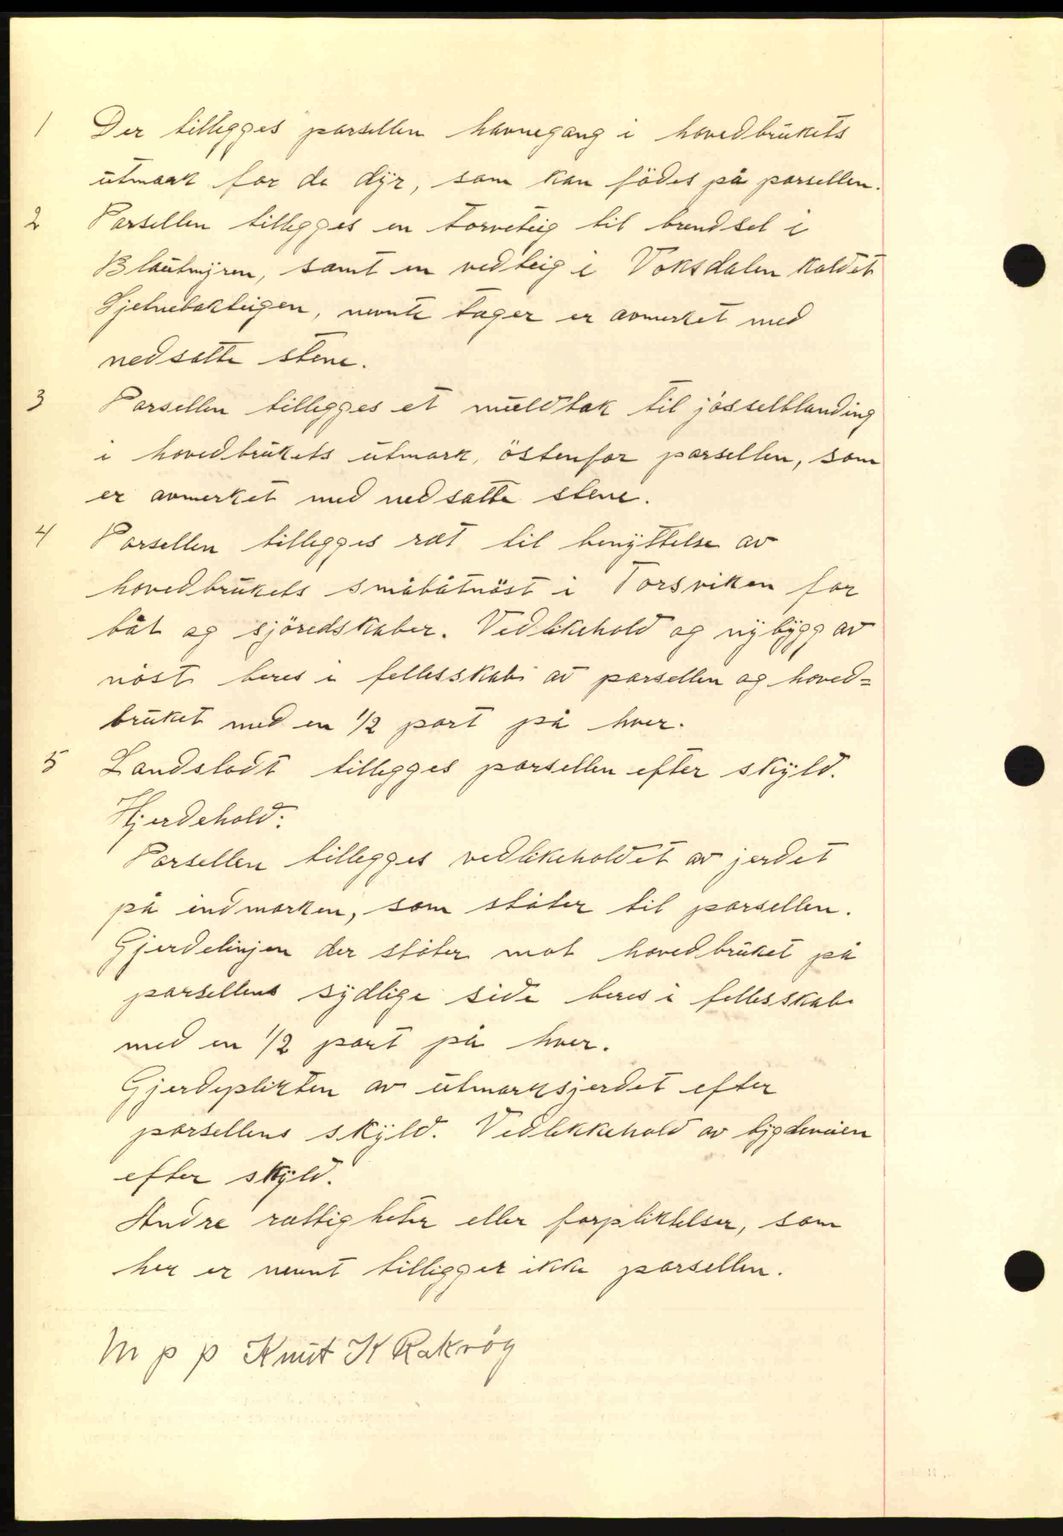 1 Der tillegges parsellen havnegang i hovedbrukets
utmark for de dyr, som kan födes på parsellen.
2 Parsellen tillegges en torvteig til brendsel i
Blautmyren, samt en vedteig i Voksdalen kaldet
Hjelnebakteigen, nevnte tæger er avmerket med
nedsatte stene.
3 Parsellen tillegges et muldtak til jösselblanding
i hovedbrukets utmark, östenfor parsellen, som
er avmerket med nedsatte stene.
4 Parsellen tillegges ræt til benyttelse av
hovedbrukets småbåtnöst i Torsviken for
båt og sjöredskaber. Vedlikehold og nybygg av
nöst beres i fellesskab av parsellen og hoved=
bruket med en 1/2 part på hver.
5 Landslodt tillegges parsellen efter skyld.
Hjerdehold:
Parsellen tillegges vedlikeholdet av jerdet
på indmarken, som stöter til parsellen.
Gjerdelinjen der stöter mot hovedbruket på
parsellens sydlige side beres i fellesskab
med en 1/2 part på hver.
Gjerdeplikten av utmarksjerdet efter
parsellens skyld. Vedlikkehold av bygdeveien
efter skyld.
Andre rættigheter eller forpliktelser, som
her er nevnt tilligger ikke parsellen.
M p p Knut K Rakvög